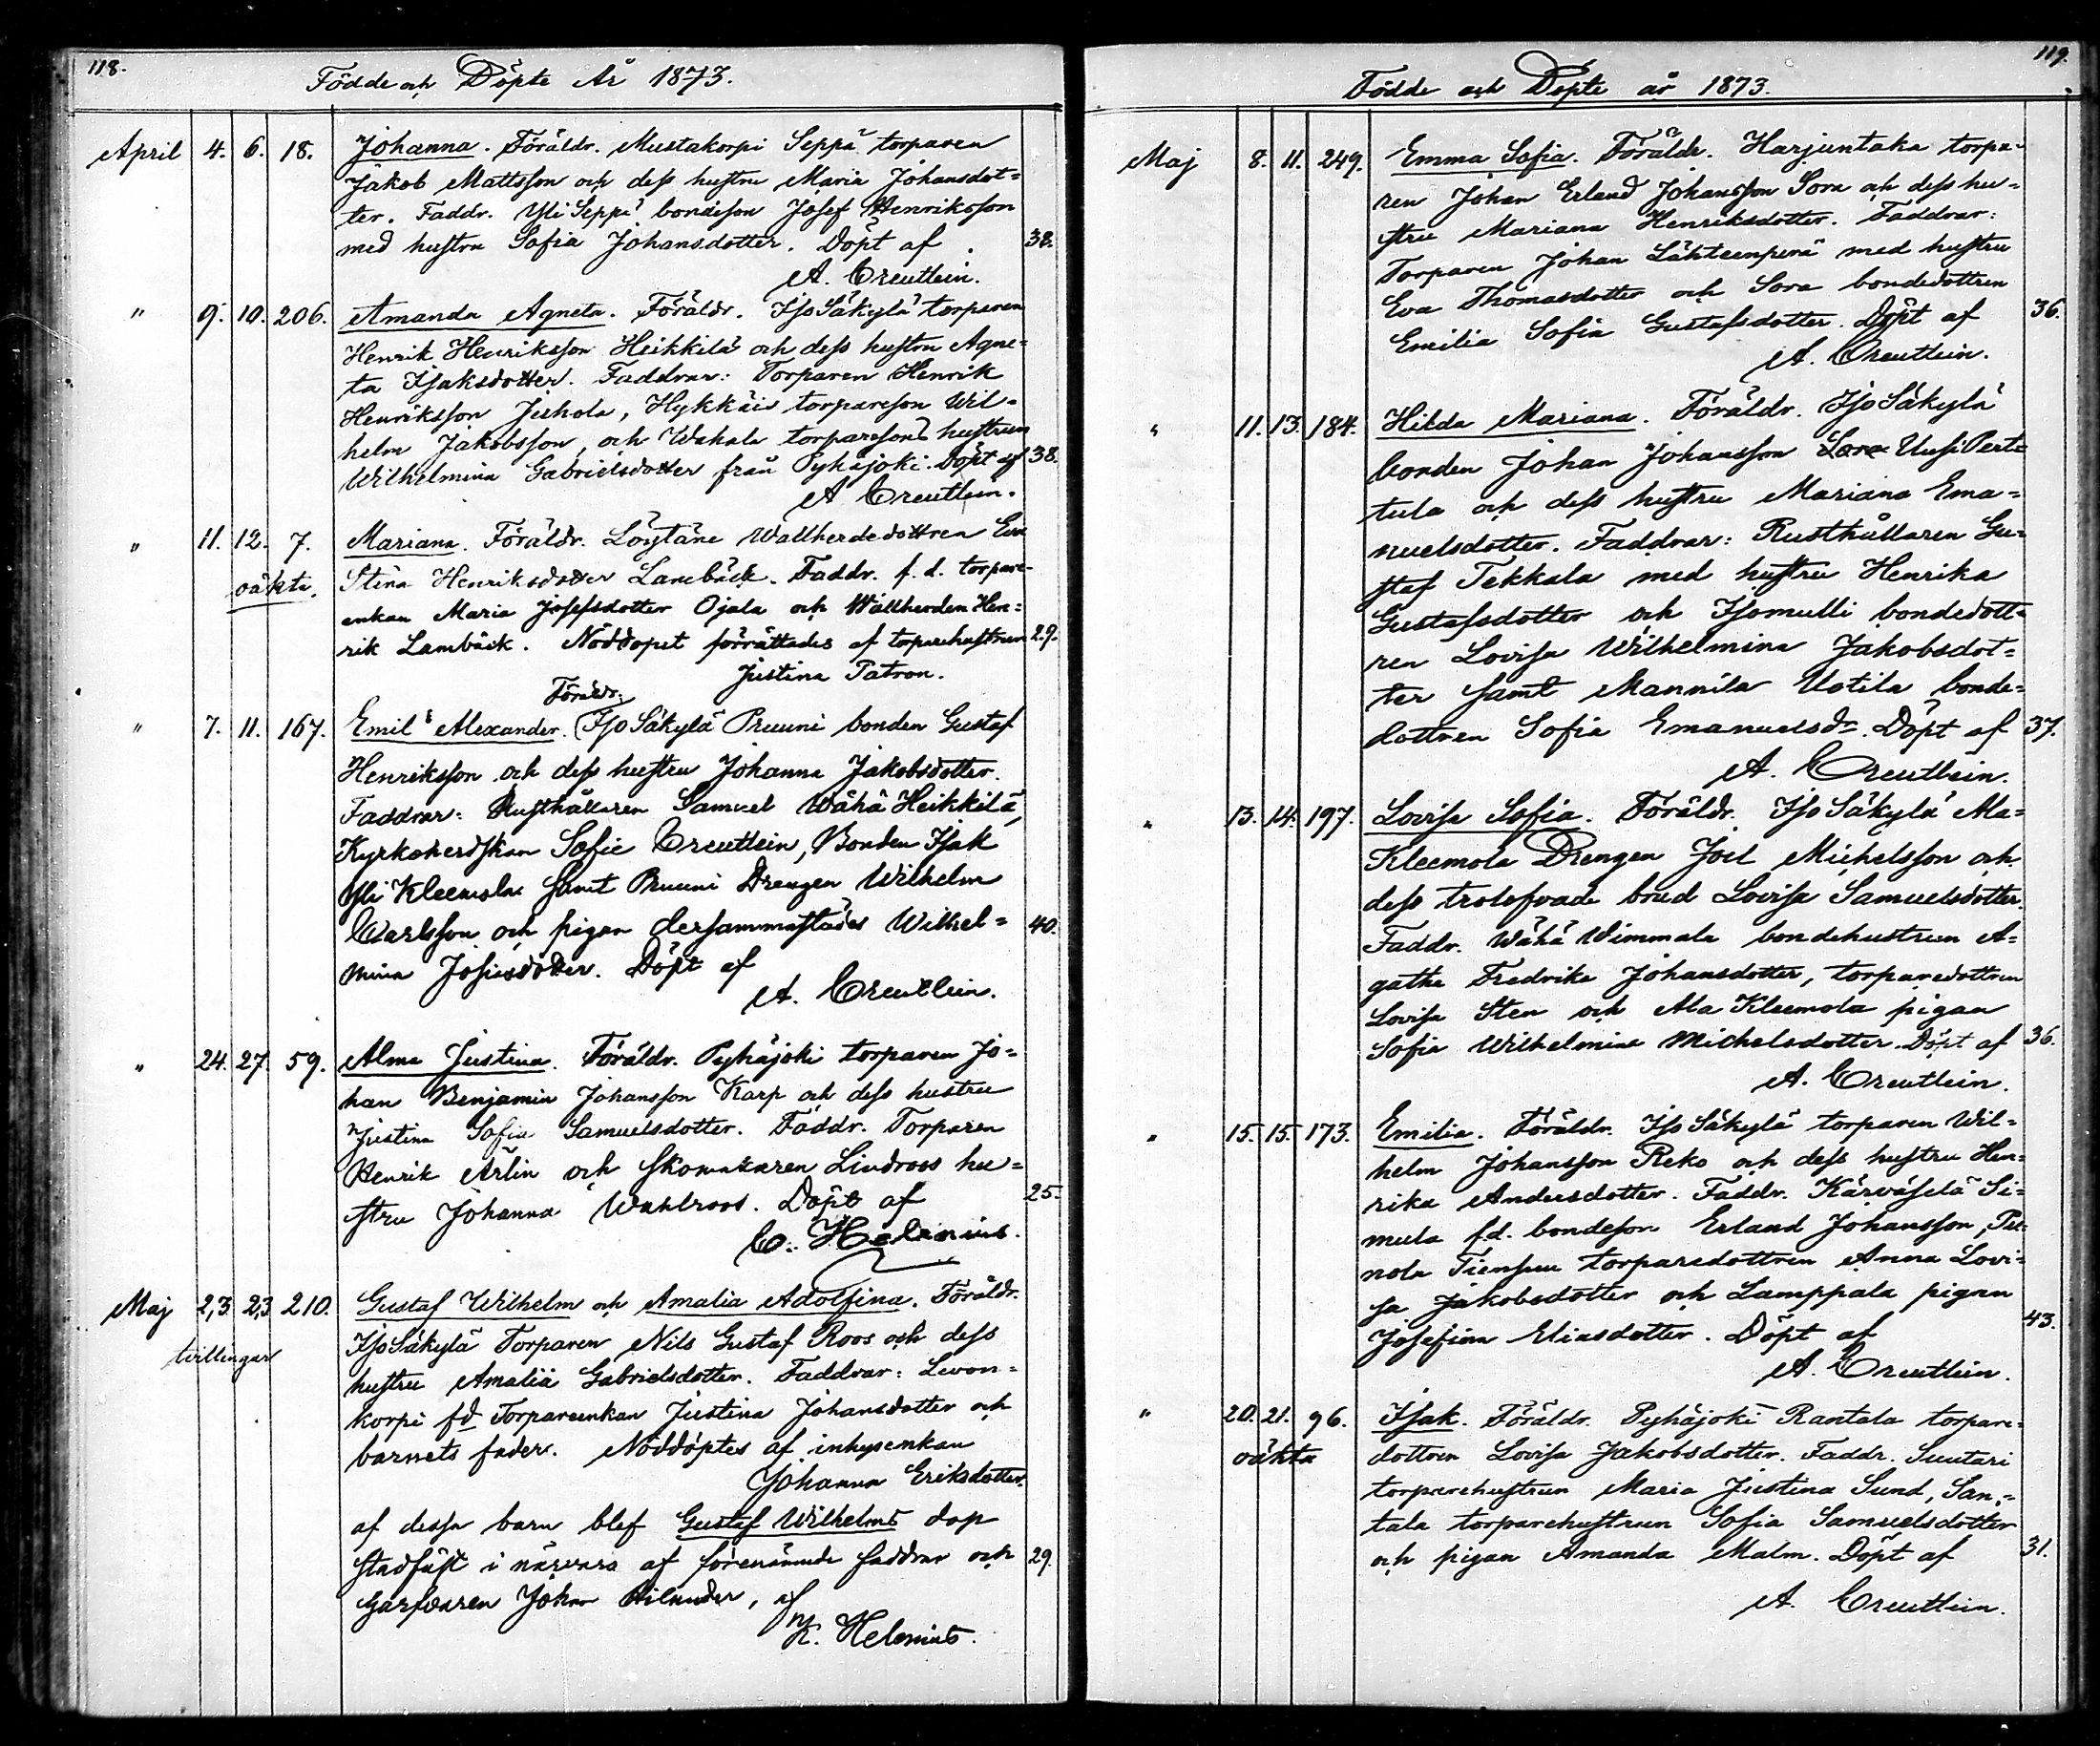 118.
Födde och Döpte År 1873.
April 4. 6. 18. Johanna. Föräldr. Mustakorpi Seppä torparen
Jakob Mattsson och dess hustru Maria Johansdot=
ter. Faddr. Yli Seppä bondeson Josef Henriksson
med hustru Sofia Johansdotter. Döpt af 38.
A. Creutlein.
" 9. 10. 206. Amanda Agneta. Föräldr. Iso Säkylä torparen
Henrik Henriksson Heikkilä och dess hustru Agne=
ta Isaksdotter. Faddrar: Torparen Henrik
Henriksson Jishola, Hykkäis torpareson Wil=
helm Jakobsson, och Wakala torparesons hustrun
Wilhelmina Gabrielsdotter från Pyhäjoki. Döpt af 38.
A Creutlein.
" 11. 12. 7. Mariana. Föräldr. Löytäne Wallherdedottren Eva
oäkta. Stina Henriksdotter Lambäck. Faddr. f. d. torpare-
enkan Maria Josefsdotter Ojala och Wallherden Hen=
rik Lambäck. Nöddopet förrättades af toparehustrun 29.
Justina Patron.
Föräldr.
" 7. 11. 167. Emil Alexander. Iso Säkylä Pruuni bonden Gustaf
Henriksson och dess hustru Johanna Jakobsdotter.
Faddrar: Rusthållaren Samuel Wähä Heikkilä,
Kyrkoherdskan Sofie Creutlein, Bonden Isak
Yli Kleemola samt Pruuni Drengen Wilhelm
Carlsson och pigan dersammastädes Wilhel= 40.
mina Josiasdotter. Döpt af
A. Creutlein.
" 24. 27. 59. Alma Justina. Föräldr. Pyhäjoki torparen Jo=
han Benjamin Johansson Karp och dess hustru
Justina Sofia Samuelsdotter. Faddr. Torparen
Henrik Arlin och skomakaren Lindroos hu=
stru Johanna Wahlroos. Döpt af 25.
C. Helenius.
Maj 2,3 2,3 210. Gustaf Wilhelm och Amalia Adolfina. Föräldr.
tvillingar Iso Säkylä Torparen Nils Gustaf Roos och dess
hustru Amalia Gabrielsdotter. Faddrar: Levon=
korpi fd Torpareenkan Justina Johansdotter och
barnets fader. Nöddöptes af inhysenkan
Johanna Eriksdotter.
af dessa barn blef Gustaf Wilhelms dop
stadfäst i närvaro af förenämnde faddrar och 29.
Garfvaren Johan Hilander, af
K. Helenius.
119.
Födde och Döpte år 1873.
Maj 8. 11. 249. Emma Sofia. Föräldr. Harjuntaka torpa-
ren Johan Erland Johansson Sora och dess hu=
stru Mariana Henriksdotter. Faddrar:
Torparen Johan Lähteenperä med hustru
Eva Thomasdotter och Sora bondedottren
Emilia Sofia Gustafsdotter. Döpt af 36.
A. Creutlein.
" 11. 13. 184. Hilda Mariana. Föräldr. Iso Säkylä
bonden Johan Johansson Uusi Pert=
tula och dess hustru Mariana Ema=
nuelsdotter. Faddrar: Rusthållaren Gu=
staf Tekkala med hustru Henrika
Gustafsdotter och Isomulli bondedott=
ren Lovisa Wilhelmina Jakobsdot=
ter samt Mannila Uotila bonde=
dottren Sofia Emanuelsdr. Döpt af 37.
A. Creutlein.
" 13. 14. 197. Lovisa Sofia. Föräldr. Iso Säkylä Ala=
Kleemola Drengen Joel Michelsson och
dess trolofvade brud Lovisa Samuelsdotter.
Faddr. Wähä Wimmala bondehustrun A=
gatha Fredrika Johansdotter, torparedottren
Lovisa Sten och Ala Kleemola pigan
Sofia Wilhelmina Michelsdotter. Döpt af 36.
A. Creutlein.
" 15. 15. 173. Emilia. Föräldr. Iso Säkylä torparen Wil=
helm Johansson Reko och dess hustru Hen=
rika Andersdotter. Faddr. Kärväselä Si=
mula f.d. bondeson Erland Johansson, Pu=
nola Tiensuu torparedottren Anna Lovi=
sa Jakobsdotter och Lamppala pigan
Josefina Eliasdotter. Döpt af 43.
A. Creutlein.
" 20. 21. 96. Isak. Föräldr. Pyhäjoki Rantala torpare=
oäkta dottren Lovisa Jakobsdotter. Faddr. Suutari
torparehustrun Maria Justina Sund, San=
tala torparehustrun Sofia Samuelsdotter
och pigan Amanda Malm. Döpt af 31.
A. Creutlein.